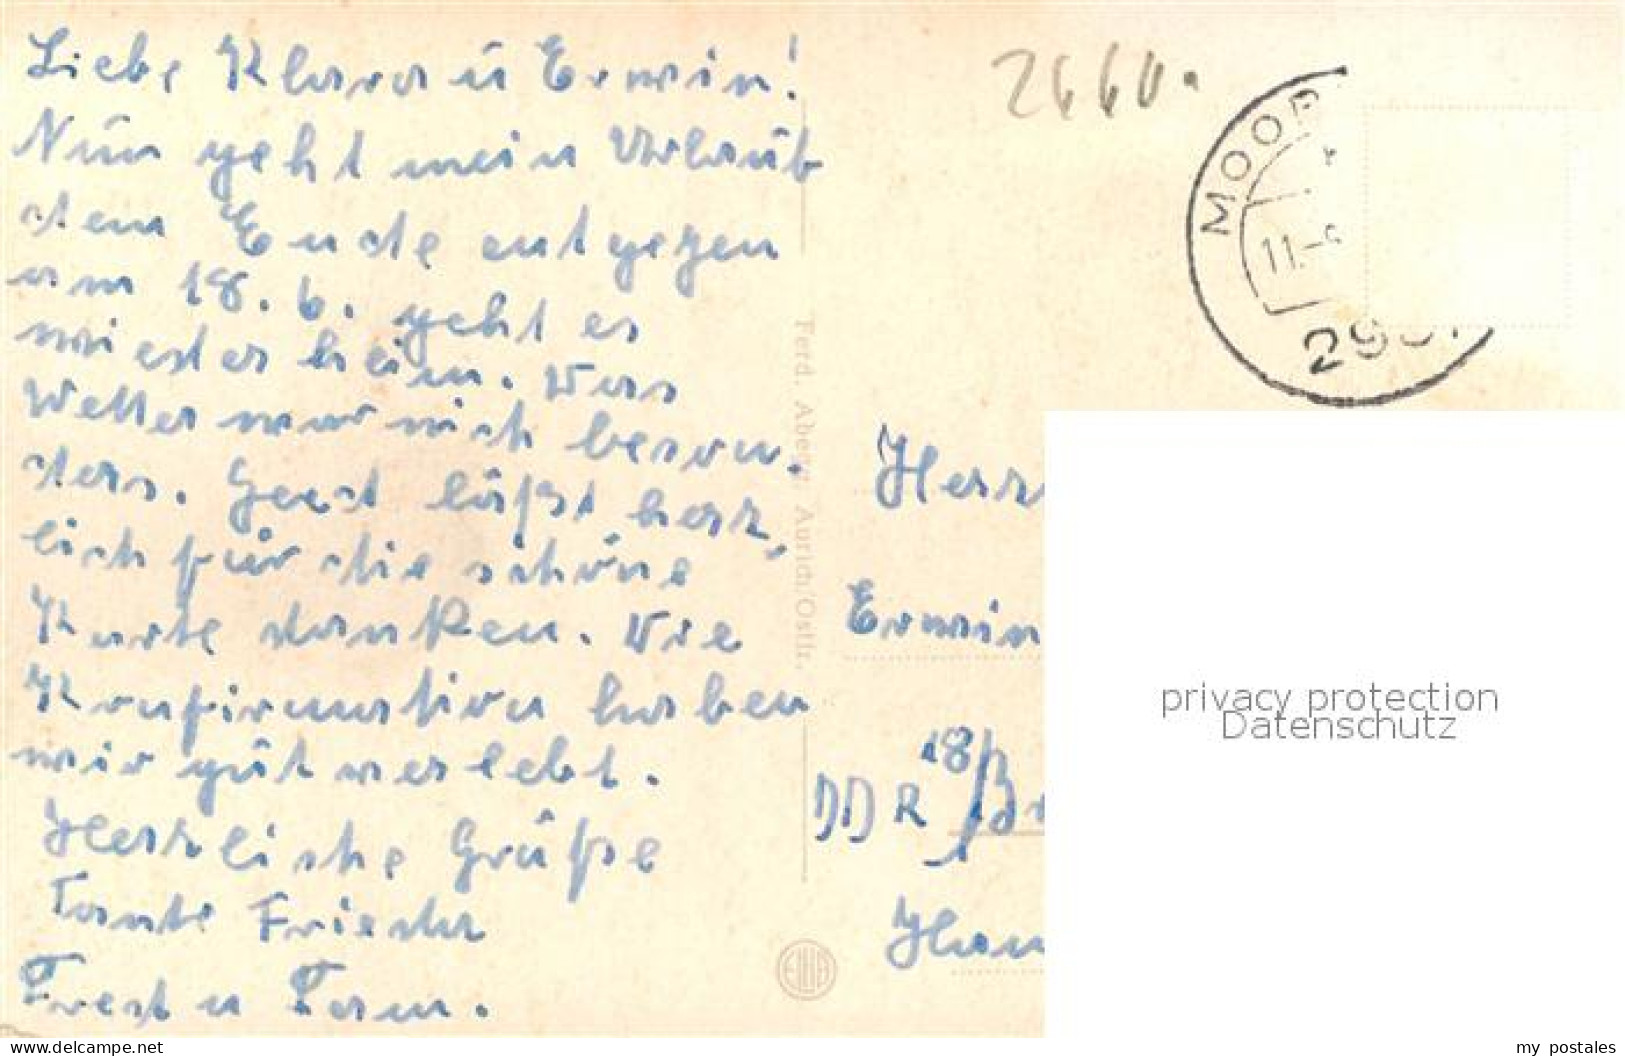 Liebe Klara u Erwin!
Nun geht mein Urlaub
dem Ende entgegen
am 18. 6. geht es
wieder heim. Das
Wetter war nich beson-
ders. Gerd läßt herz,
lich für die schöne
Karte danken. Die
Konfirmation haben
wir gut verlebt.
Herzliche Grüße
Tante Frieda
u Fam.
Ferd. Aberg, Aurich/Ostfr.
2660.
MOOR
11.-
29
Herr
Erwin
DDR 18
Han
privacy protection
Datenschutz
www.delcampe.net
my_postales